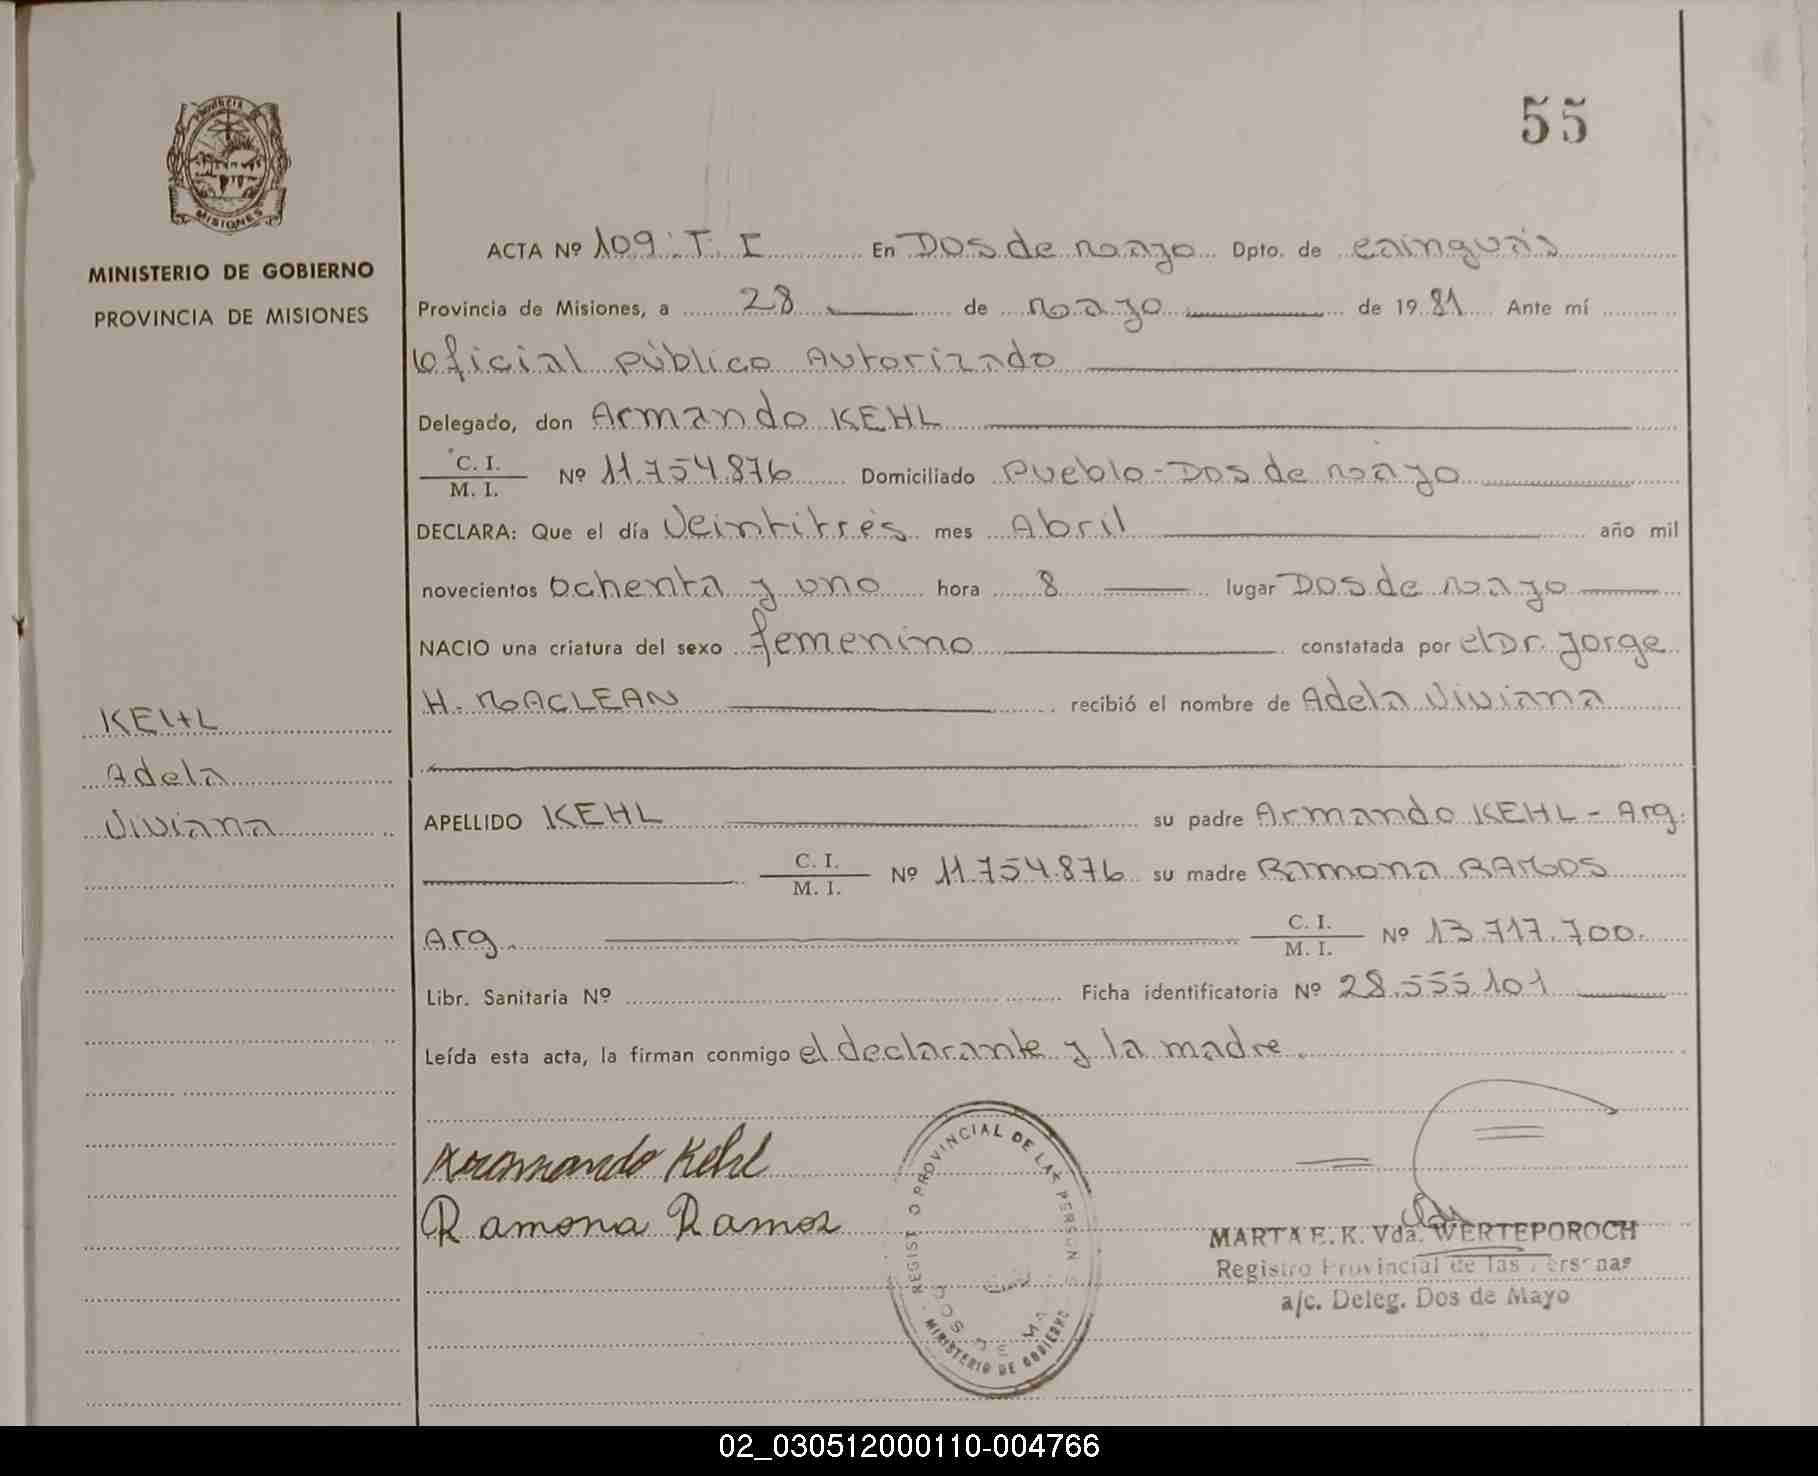 55
PROVINCIA
MISIONES
MINISTERIO DE GOBIERNO
PROVINCIA DE MISIONES
ACTA Nº 109. T. I En Dos de mayo Dpto. de cainguás
Provincia de Misiones, a 28 de mayo de 1981 Ante mí
oficial público Autorizado
Delegado, don Armando KEHL
C. I.
M. I. Nº 11.754.876 Domiciliado Pueblo-Dos de mayo
DECLARA: Que el día Veintitrés mes Abril año mil
novecientos ochenta y uno hora 8 lugar Dos de mayo
NACIO una criatura del sexo femenino constatada por el Dr. Jorge
H. MACLEAN recibió el nombre de Adela Viviana
KEHL
Adela
Viviana
APELLIDO KEHL su padre Armando KEHL - Arg.
C. I.
M. I. Nº 11.754.876 su madre Ramona RAMOS
Arg. C. I.
M. I. Nº 13.717.700.
Libr. Sanitaria Nº Ficha identificatoria Nº 28.555.101
Leída esta acta, la firman conmigo el declarante y la madre.
Armando Kehl
Ramona Ramos
REGISTRO PROVINCIAL DE LAS PERSONAS
MINISTERIO DE GOBIERNO
MARTA E. K. Vda. WERTEPOROCH
Registro Provincial de las Personas
a/c. Deleg. Dos de Mayo
02_030512000110-004766